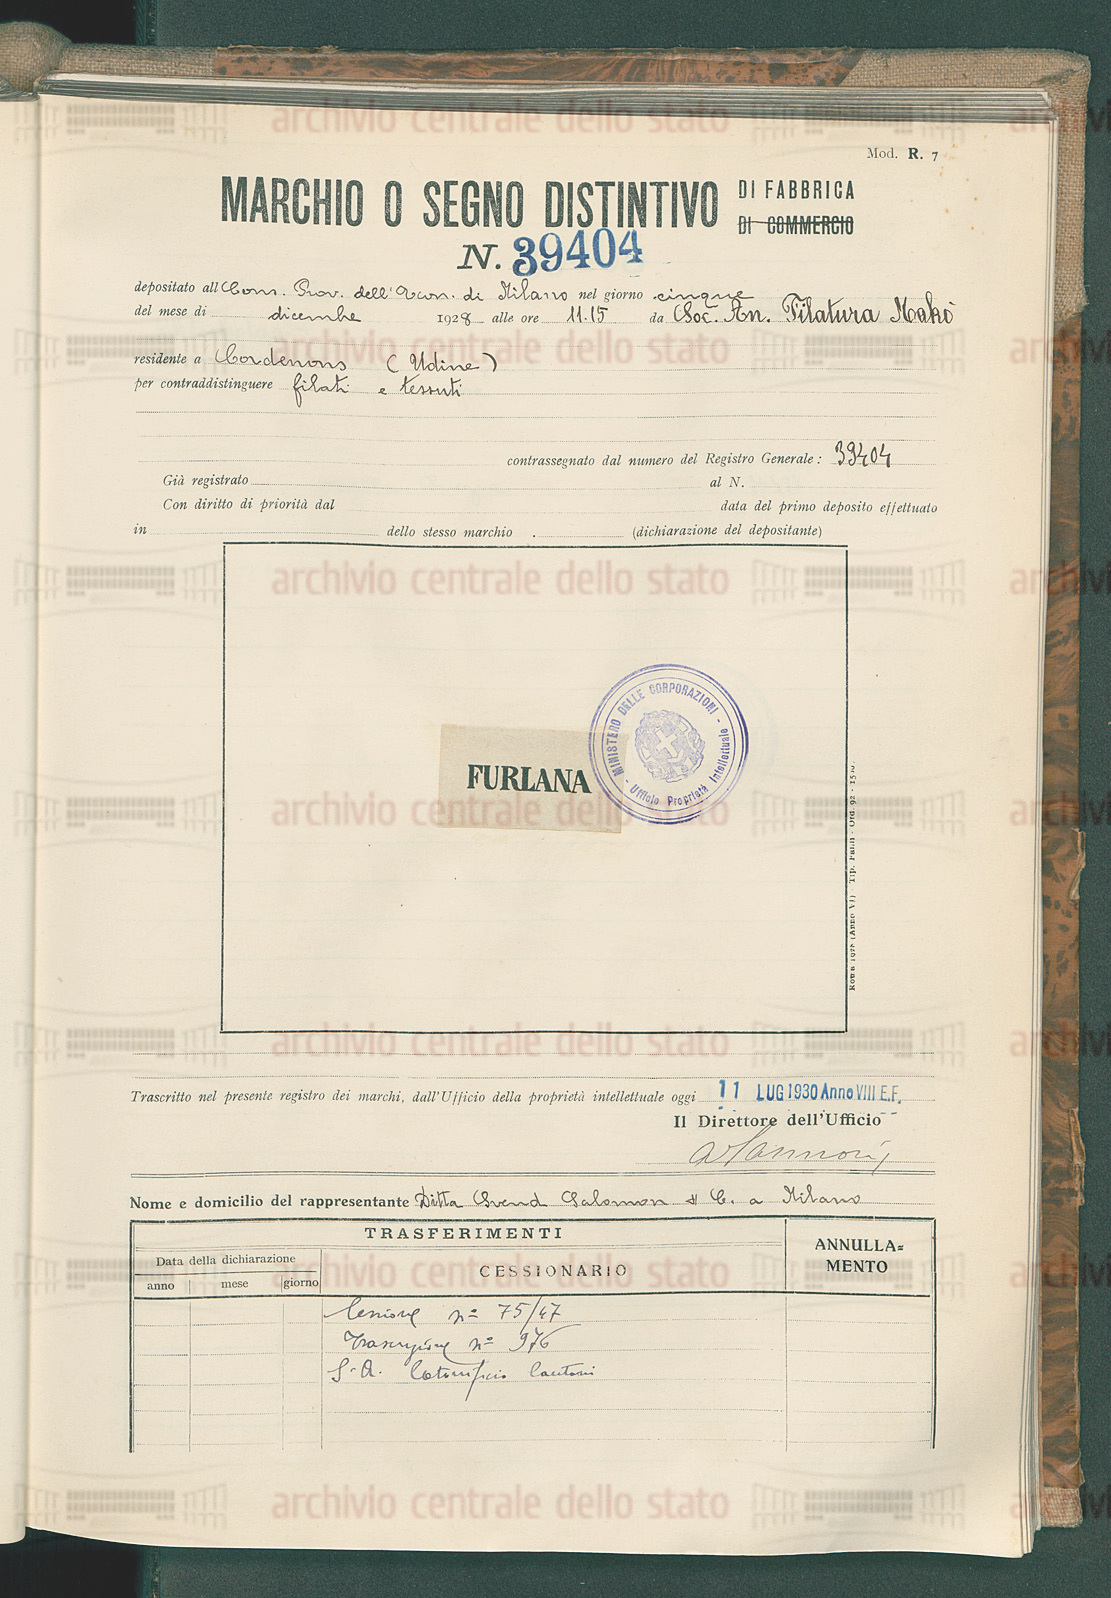 Mod. R. 7
MARCHIO O SEGNO DISTINTIVO DI FABBRICA
DI COMMERCIO
N. 39404
depositato all Cons. Prov. dell'Econ. di Milano nel giorno cinque
del mese di dicembre 1928 alle ore 11.15 da Soc. An. Filatura Makò
residente a Cordenons (Udine)
per contraddistinguere filati e tessuti
contrassegnato dal numero del Registro Generale: 39404
Già registrato al N.
Con diritto di priorità dal data del primo deposito effettuato
in dello stesso marchio (dichiarazione del depositante)
MINISTERO DELLE CORPORAZIONI - Ufficio Proprietà Intellettuale -
FURLANA
Trascritto nel presente registro dei marchi, dall'Ufficio della proprietà intellettuale oggi 11 LUG 1930 Anno VIII E.F.
Il Direttore dell'Ufficio
Nome e domicilio del rappresentante Ditta Svend Salomon & C. a Milano
TRASFERIMENTI
ANNULLA=
MENTO
Data della dichiarazione
CESSIONARIO
anno mese giorno
Cessione nº 75/47
Trascrizione nº 976
S.A. Cotonificio Cantoni
archivio centrale dello stato